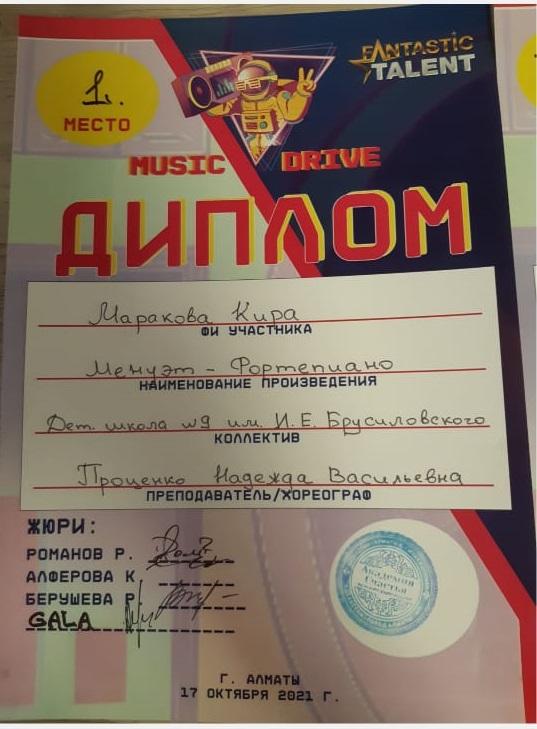 1.
МЕСТО
FANTASTIC
TALENT
MUSIC DRIVE
ДИПЛОМ
Маракова Кира
ФИ УЧАСТНИКА
Менуэт - Фортепиано
НАИМЕНОВАНИЕ ПРОИЗВЕДЕНИЯ
Дет. школа №9 им. И.Е. Брусиловского
КОЛЛЕКТИВ
Проценко Надежда Васильевна
ПРЕПОДАВАТЕЛЬ/ХОРЕОГРАФ
ЖЮРИ:
РОМАНОВ Р.
АЛФЕРОВА К
БЕРУШЕВА Р
GALA
Академия
Счастья
Г. АЛМАТЫ
17 ОКТЯБРЯ 2021 Г.